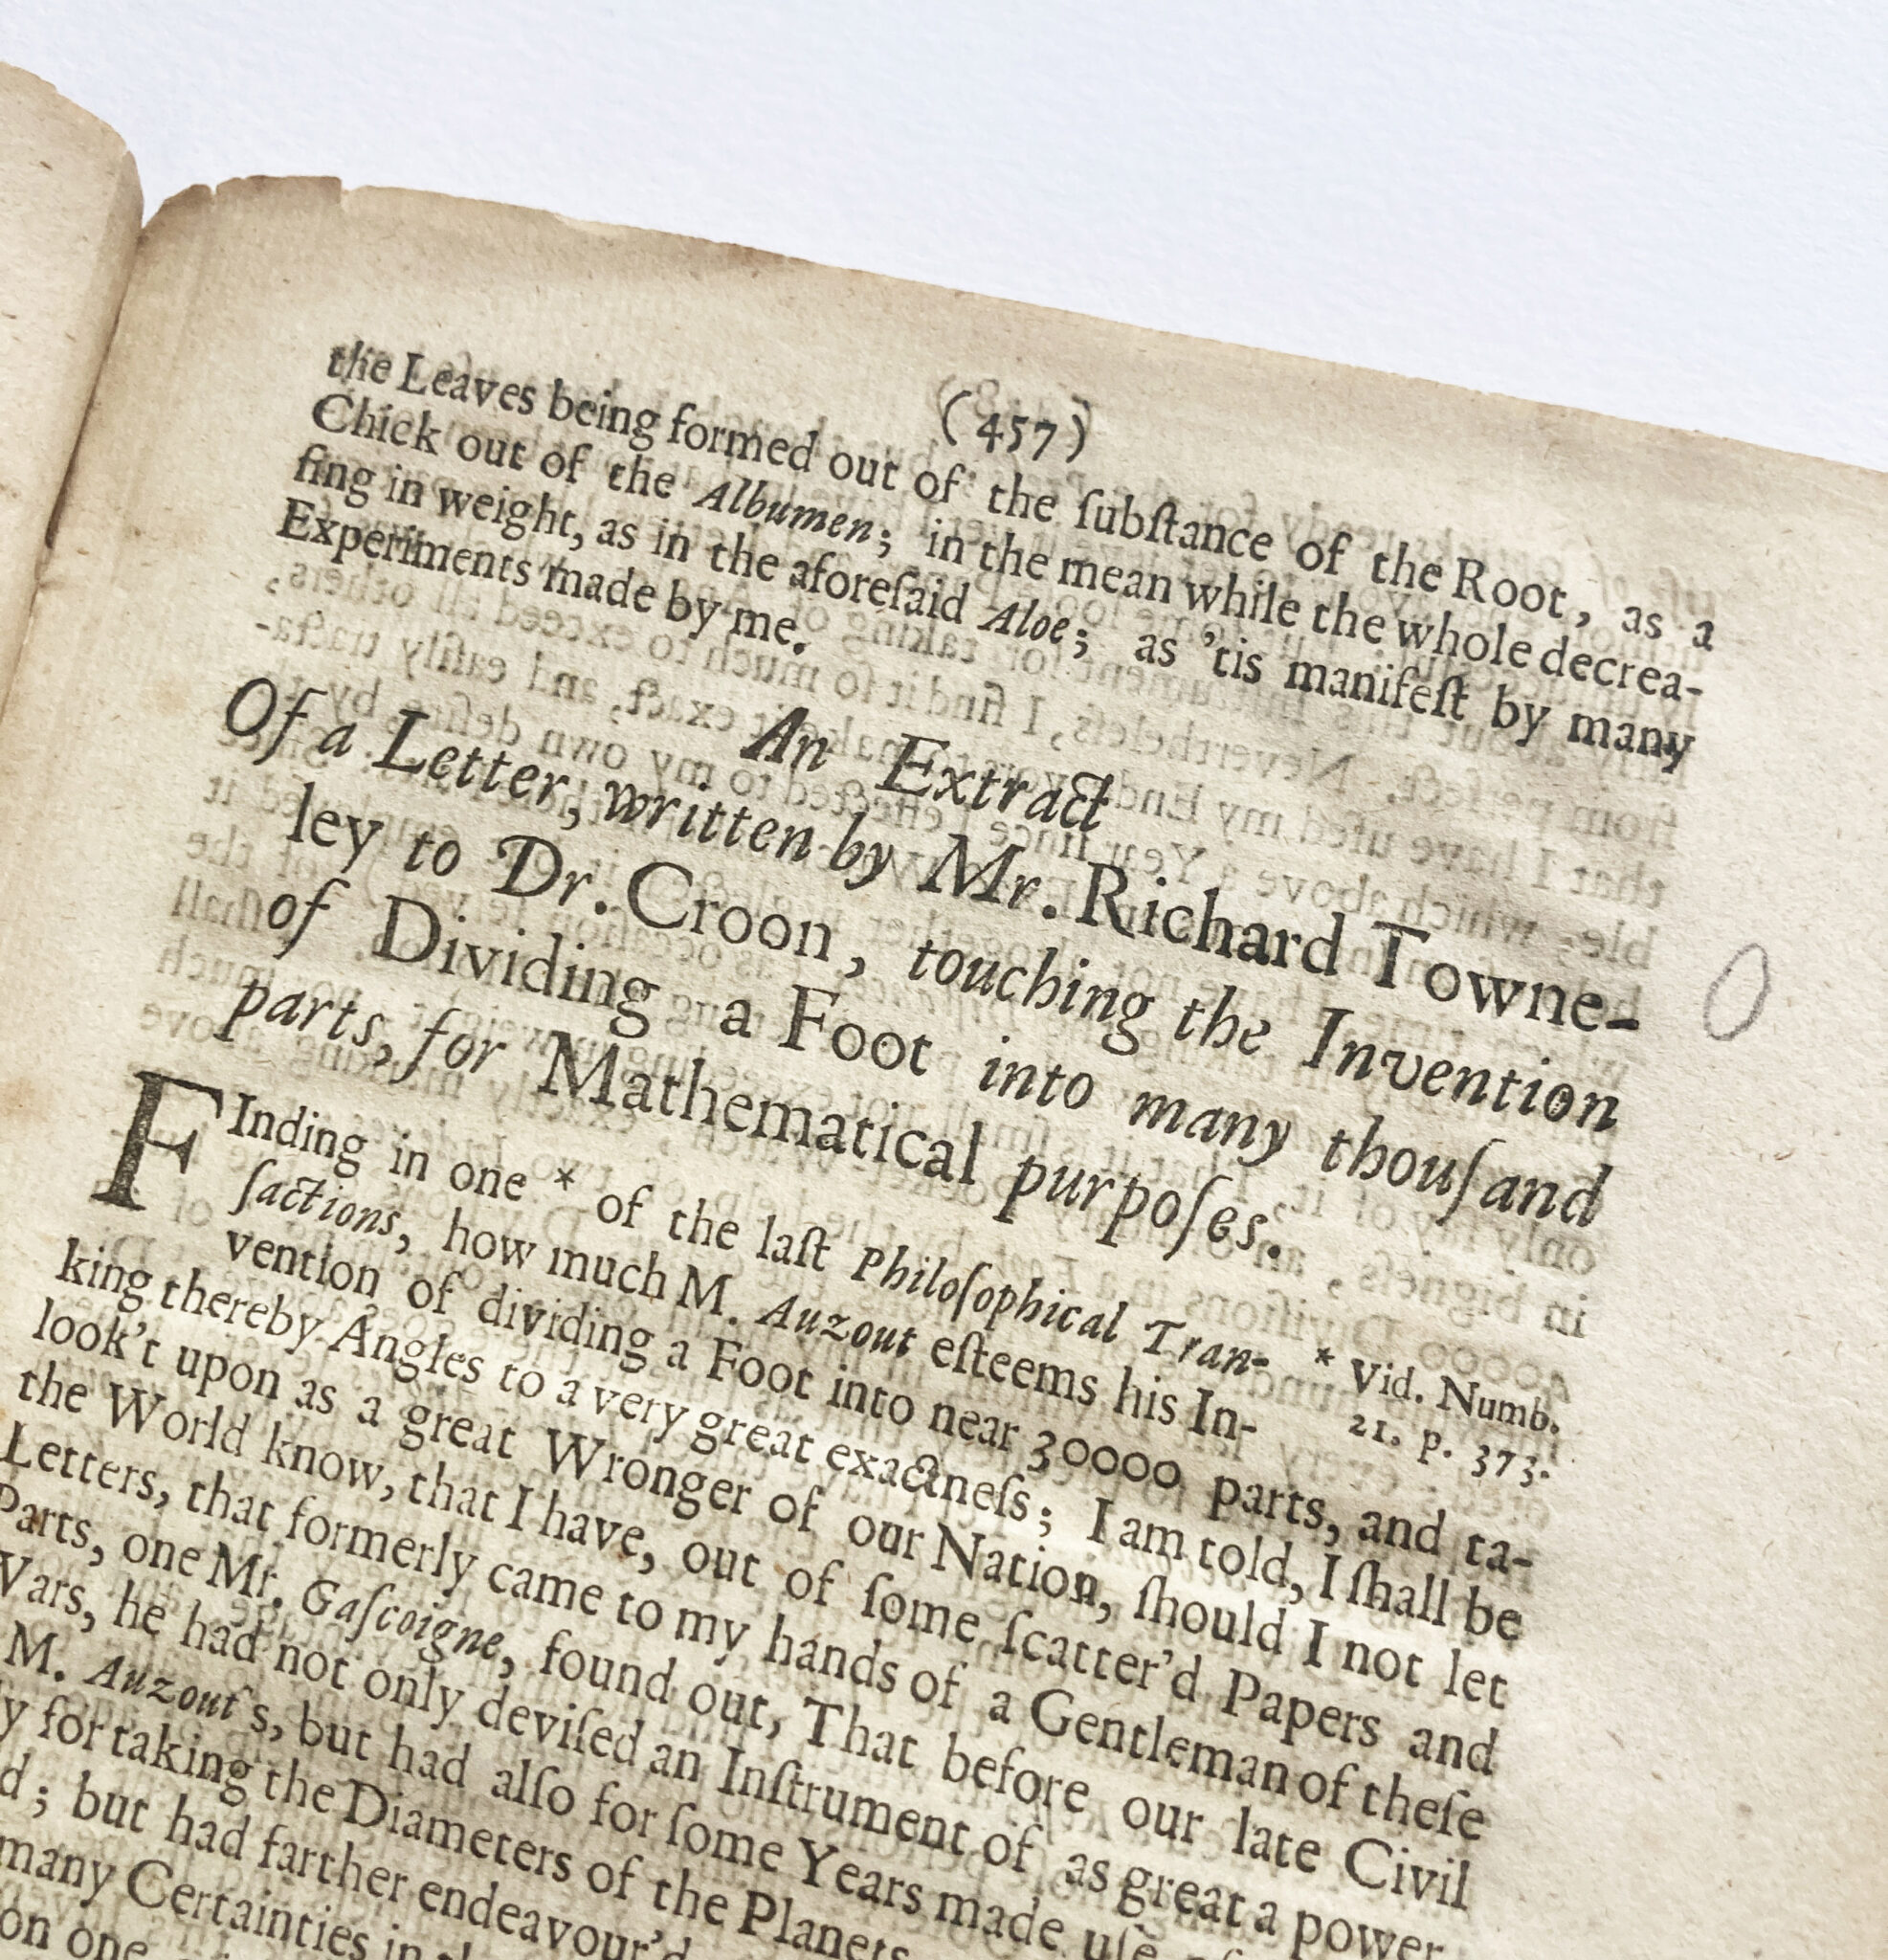 (457)
the Leaves being formed out of the ſubſtance of the Root, as a
Chick out of the Albumen; in the mean while the whole decrea-
ſing in weight, as in the aforeſaid Aloe; as 'tis manifeſt by many
Experiments made by me.
An Extract
Of a Letter, written by Mr. Richard Towne-
ley to Dr. Croon, touching the Invention
of Dividing a Foot into many thouſand
parts, for Mathematical purpoſes.
FInding in one * of the laſt Philoſophical Tran-
ſactions, how much M. Auzout eſteems his In-
vention of dividing a Foot into near 30000 parts, and ta-
* Vid. Numb.
21. p. 373.
king thereby Angles to a very great exactneſs; I am told, I ſhall be
look't upon as a great Wronger of our Nation, ſhould I not let
the World know, that I have, out of ſome ſcatter'd Papers and
Letters, that formerly came to my hands of a Gentleman of theſe
Parts, one Mr. Gaſcoigne, found out, That before our late Civil
Wars, he had not only deviſed an Inſtrument of as great a power
M. Auzout's, but had alſo for ſome Years made uſe
for taking the Diameters of the Planets
d; but had farther endeavour'd
many Certainties in
on one